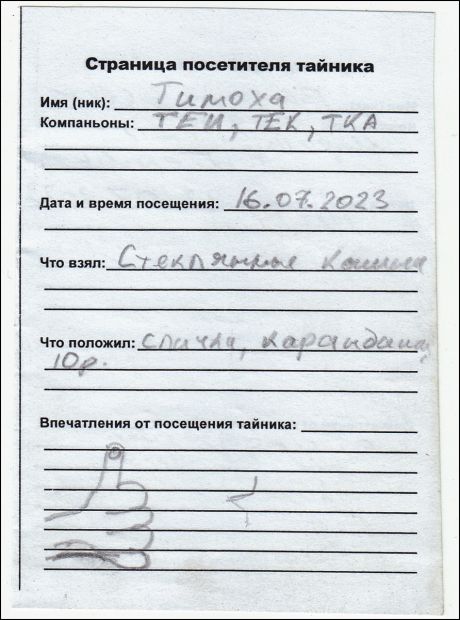 Страница посетителя тайника
Имя (ник): Тимоха
Компаньоны: ТЕИ, ТЕК, ТКА
Дата и время посещения: 16.07.2023
Что взял: Стеклянные камни
Что положил: спички, карандаш,
10р.
Впечатления от посещения тайника: